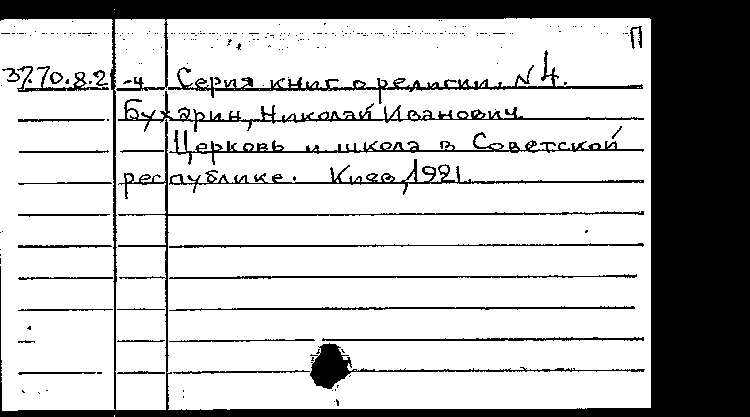 П
37.70.8.2 -4 Серия книг о религии. N 4.
Бухарин, Николай Иванович.
Церковь и школа в Советской
республике. Киев, 1921.